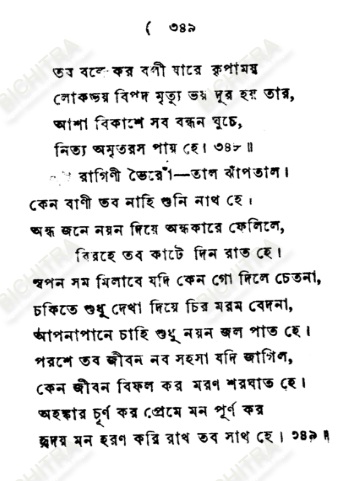 ( ৩৪৯
তব বলে কর বলী যারে কৃপাময়
লোকভয় বিপদ মৃত্যু ভয় দূর হয় তার,
আশা বিকাশে সব বন্ধন ঘুচে,
নিত্য অমৃতরস পায় হে। ৩৪৮॥
রাগিণী ভৈরোঁ—তাল ঝাঁপতাল।
কেন বাণী তব নাহি শুনি নাথ হে।
অন্ধ জনে নয়ন দিয়ে অন্ধকারে ফেলিলে,
বিরহে তব কাটে দিন রাত হে।
স্বপন সম মিলাবে যদি কেন গো দিলে চেতনা,
চকিতে শুধু দেখা দিয়ে চির মরম বেদনা,
আপনাপানে চাহি শুধু নয়ন জল পাত হে।
পরশে তব জীবন নব সহসা যদি জাগিল,
কেন জীবন বিফল কর মরণ শরঘাত হে।
অহঙ্কার চূর্ণ কর প্রেমে মন পূর্ণ কর
হৃদয় মন হরণ করি রাখ তব সাথ হে। ৩৪৯॥
BICHITRA